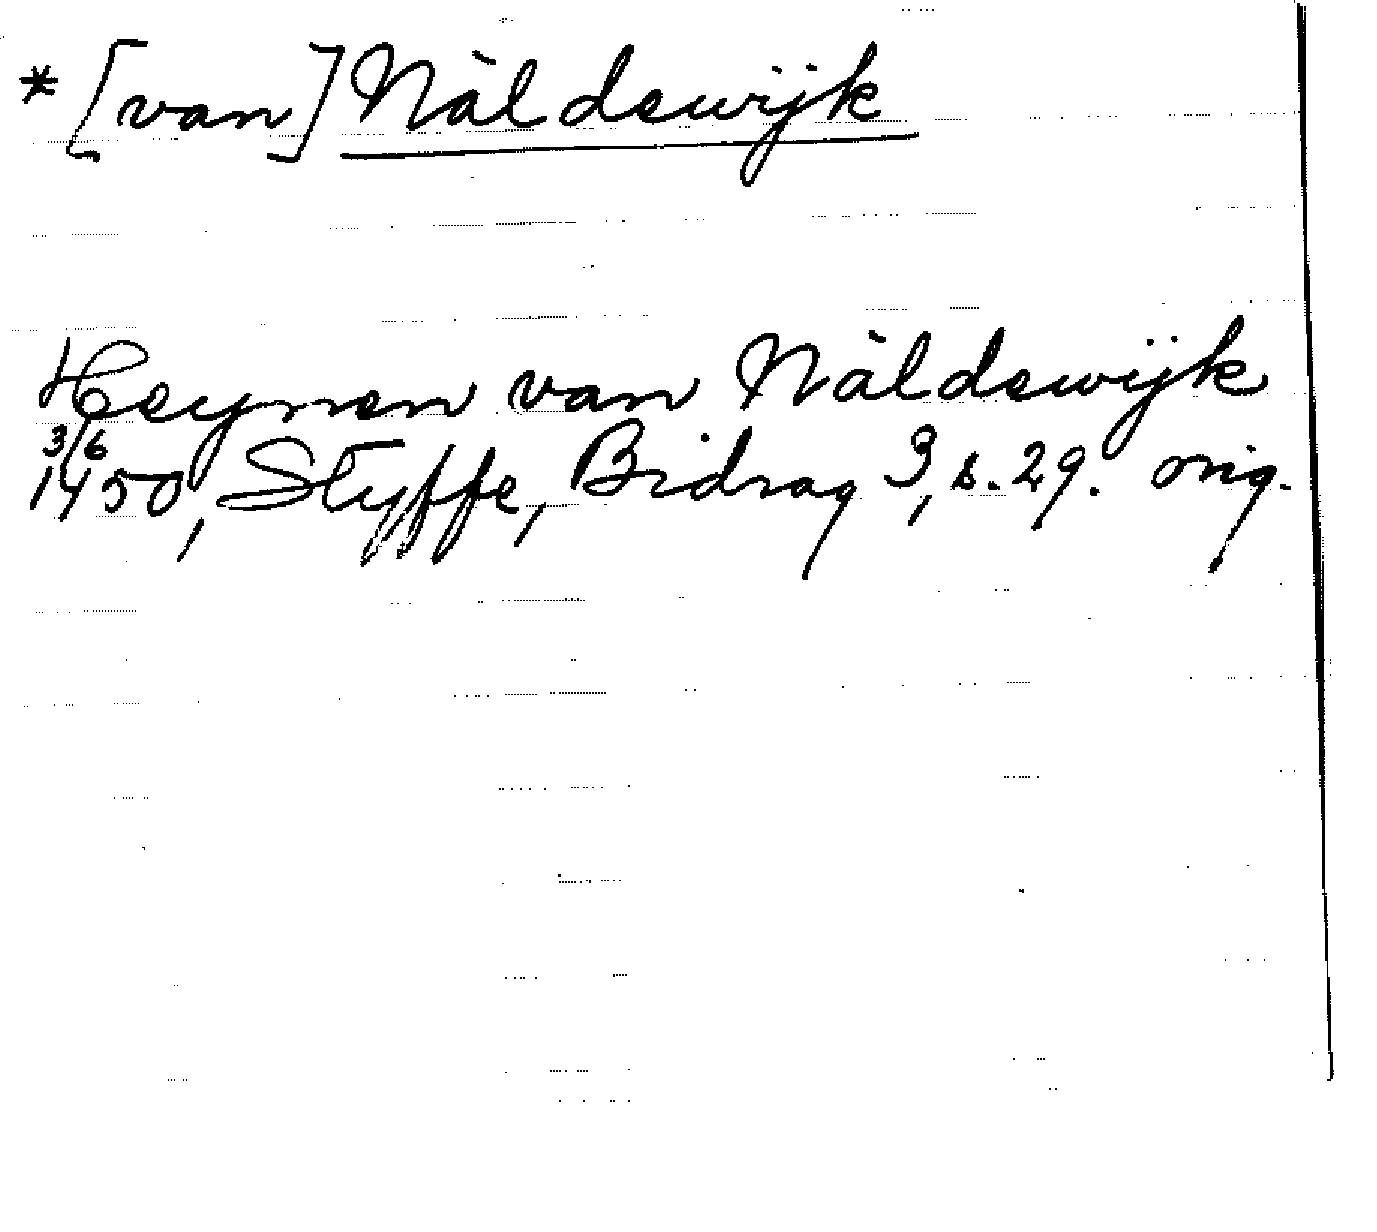 * [van] Nàldewijk
Heynen van Nàldewijk
3/6
1450, Styffe, Bidrag 3, s. 29. orig.